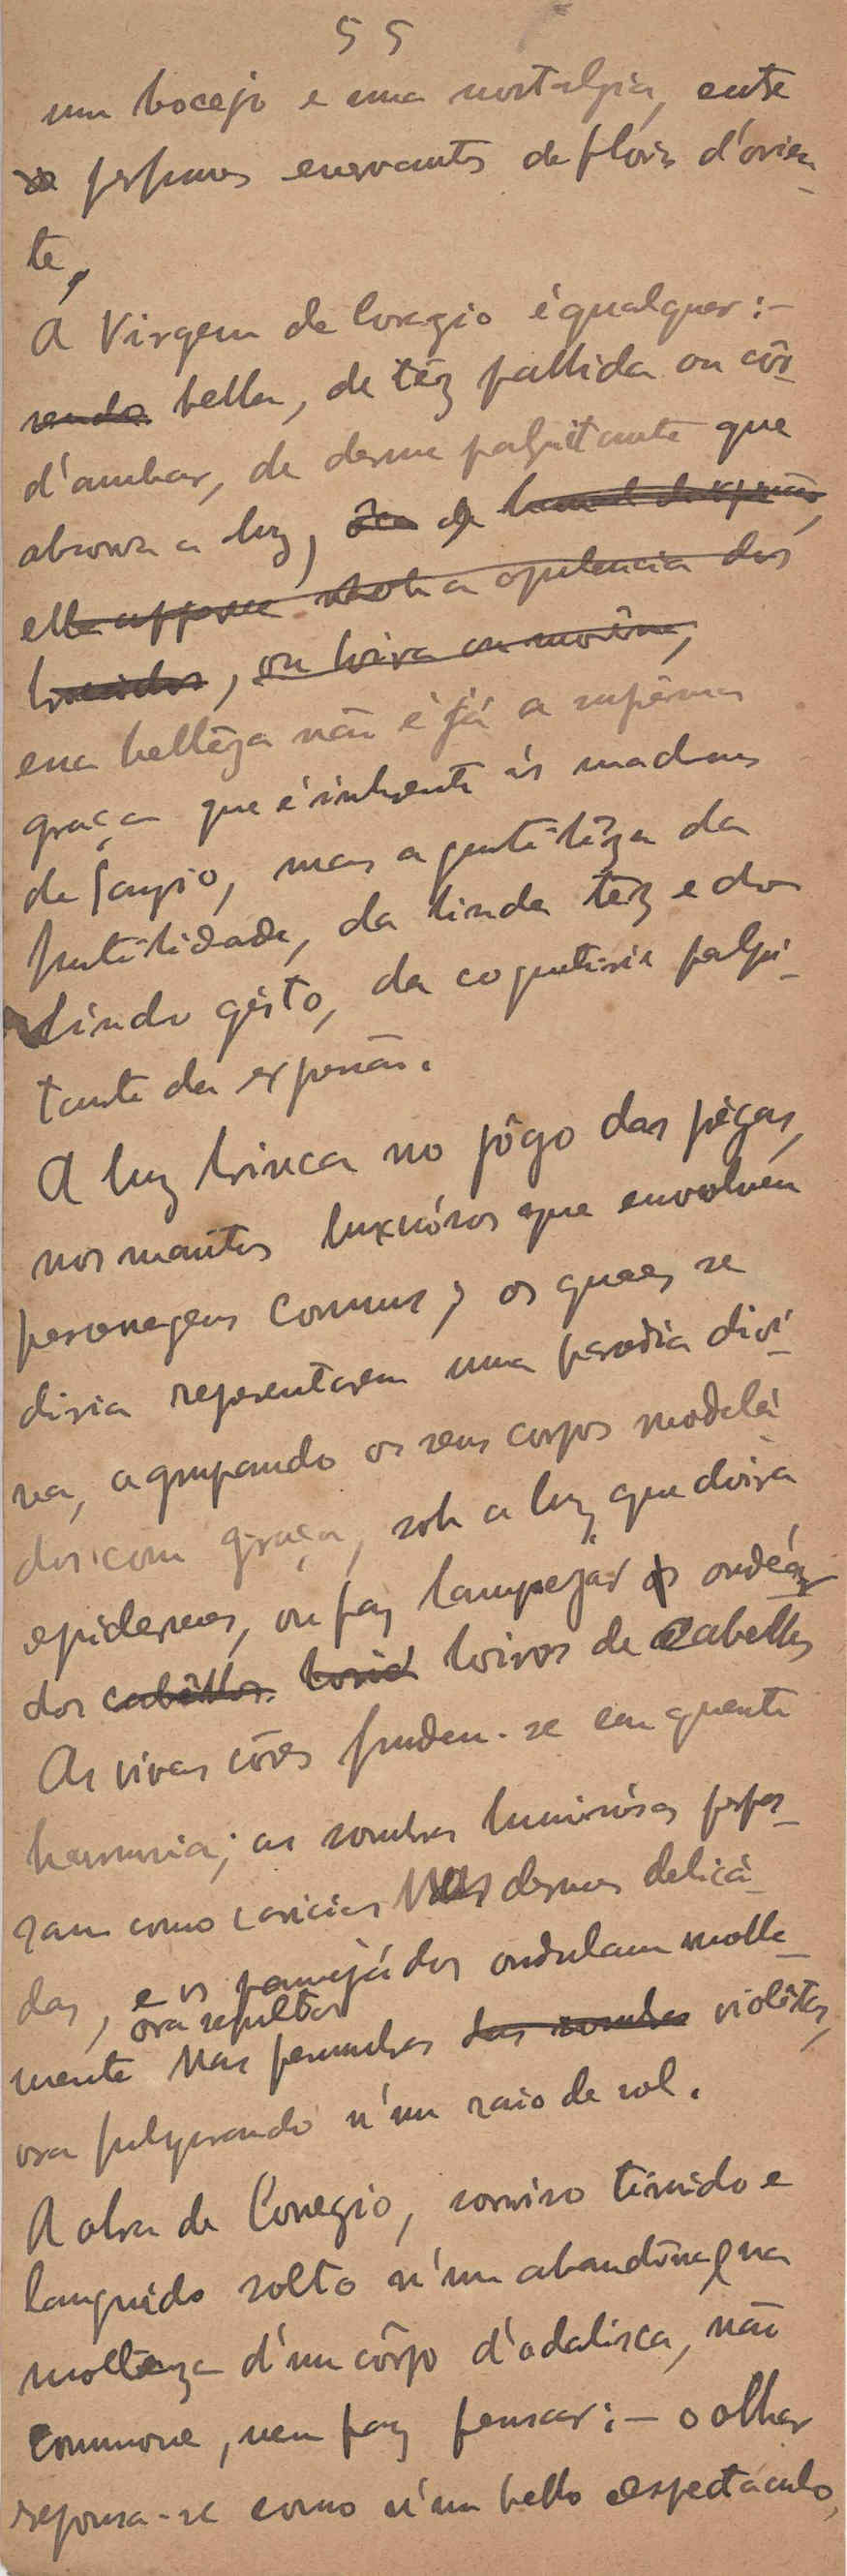 55
um bocejo e uma nostalgia, entre
perfumes enervantes de flôres d'orien-
te,
A Virgem de Coregio é qualquer:-
sendo bella, de têz pallida ou côr
d'ambar, de derme palpitante que
absorva a luz, de
ella apparece opulencia dos
brocados, ou loira ou morêna,
essa bellêza não é já a suprêma
graça que é inherente ás madonas
de Sanzio, mas a gentilêza da
futilidade, da linda têz e do
lindo gésto, da coquetterie palpi-
tante da expressão.
A luz brinca no jôgo das prégas,
nos mantos luxuósos que envolvem
personagens comuns; os quaes se
diria representarem uma parodia divi-
na, agrupando os seus corpos modelá-
dos com graça, sob a luz que doira
epidermes, ou faz lampejar os ondeá-
dos cabêllos loiros de cabellos
As vivas côres fundem-se em quente
harmonia; as sombras luminósas perpas-
sam como caricias nas dermes delicá-
das, e os panejádos ondulam molle-
ora sepultos
mente nas penumbras das sombras violêtas,
ora fulgurando n'um raio de sol.
A obra de Corregio, sorriso timido e
languido solto n'um abandôno, na
mollêza d'um côrpo d'odalisca, não
commove, nem faz pensar:- o olhar
repousa-se como n'um bello espectaculo,